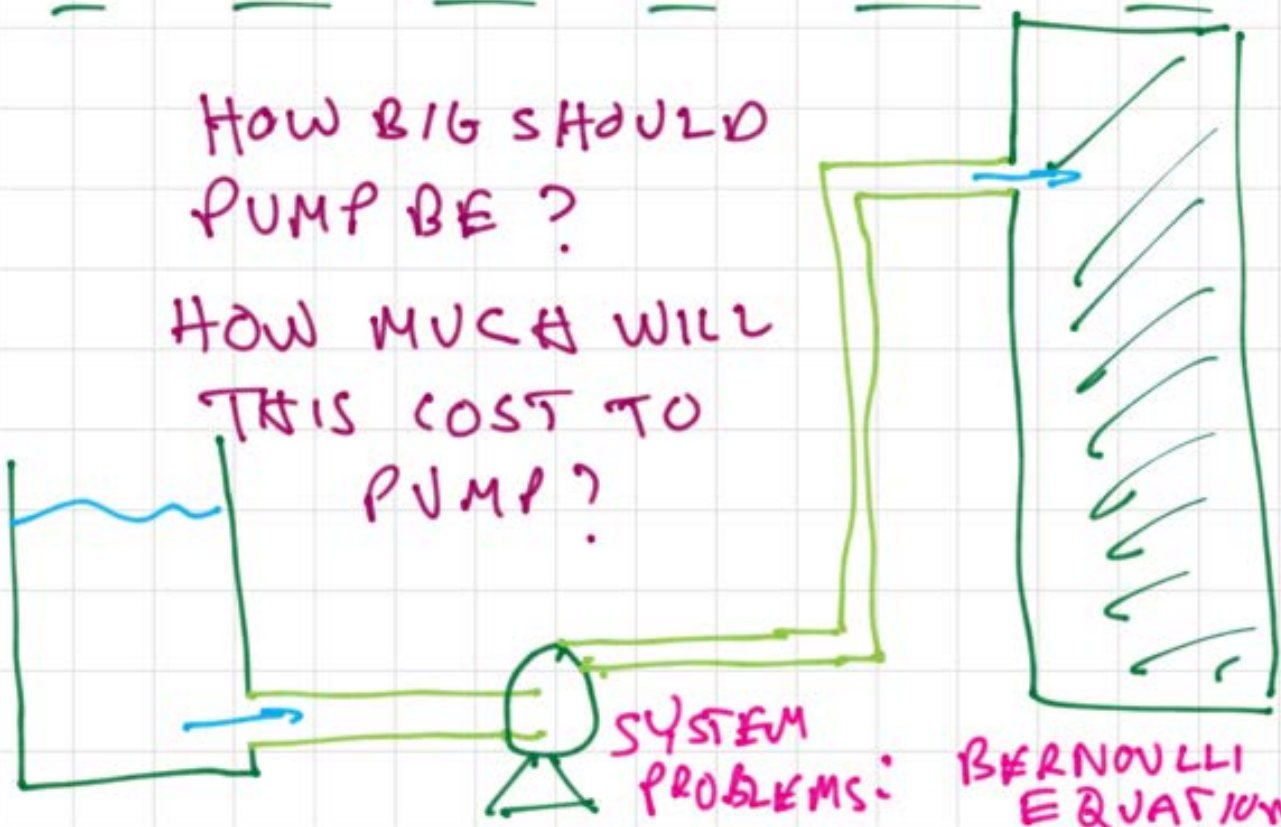 HOW BIG SHOULD
PUMP BE ?
HOW MUCH WILL
THIS COST TO
PUMP ?
SYSTEM
PROBLEMS :
BERNOULLI
EQUATION